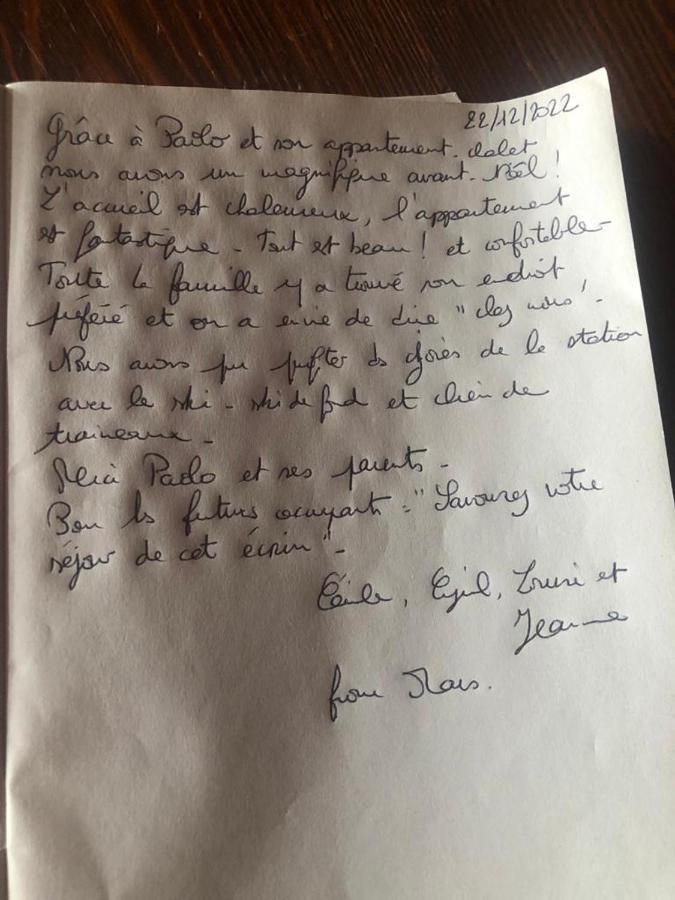 22/12/2022
Grâce à Paolo et son appartement. chalet
nous avons un magnifique avant-Noël !
L'accueil est chaleureux, l'appartement
est fantastique - Tout est beau ! et confortable -
Toute la famille y a trouvé son endroit
préféré et on a envie de dire "chez nous" -
Nous avons pu profiter des joies de la station
avec le ski - ski de fond et chien de
traineaux -
Merci Paolo et ses parents -
Pour les futurs occupants : "Savourez votre
séjour de cet écrin" -
Cécile, Cyril, et
Jeanne
from